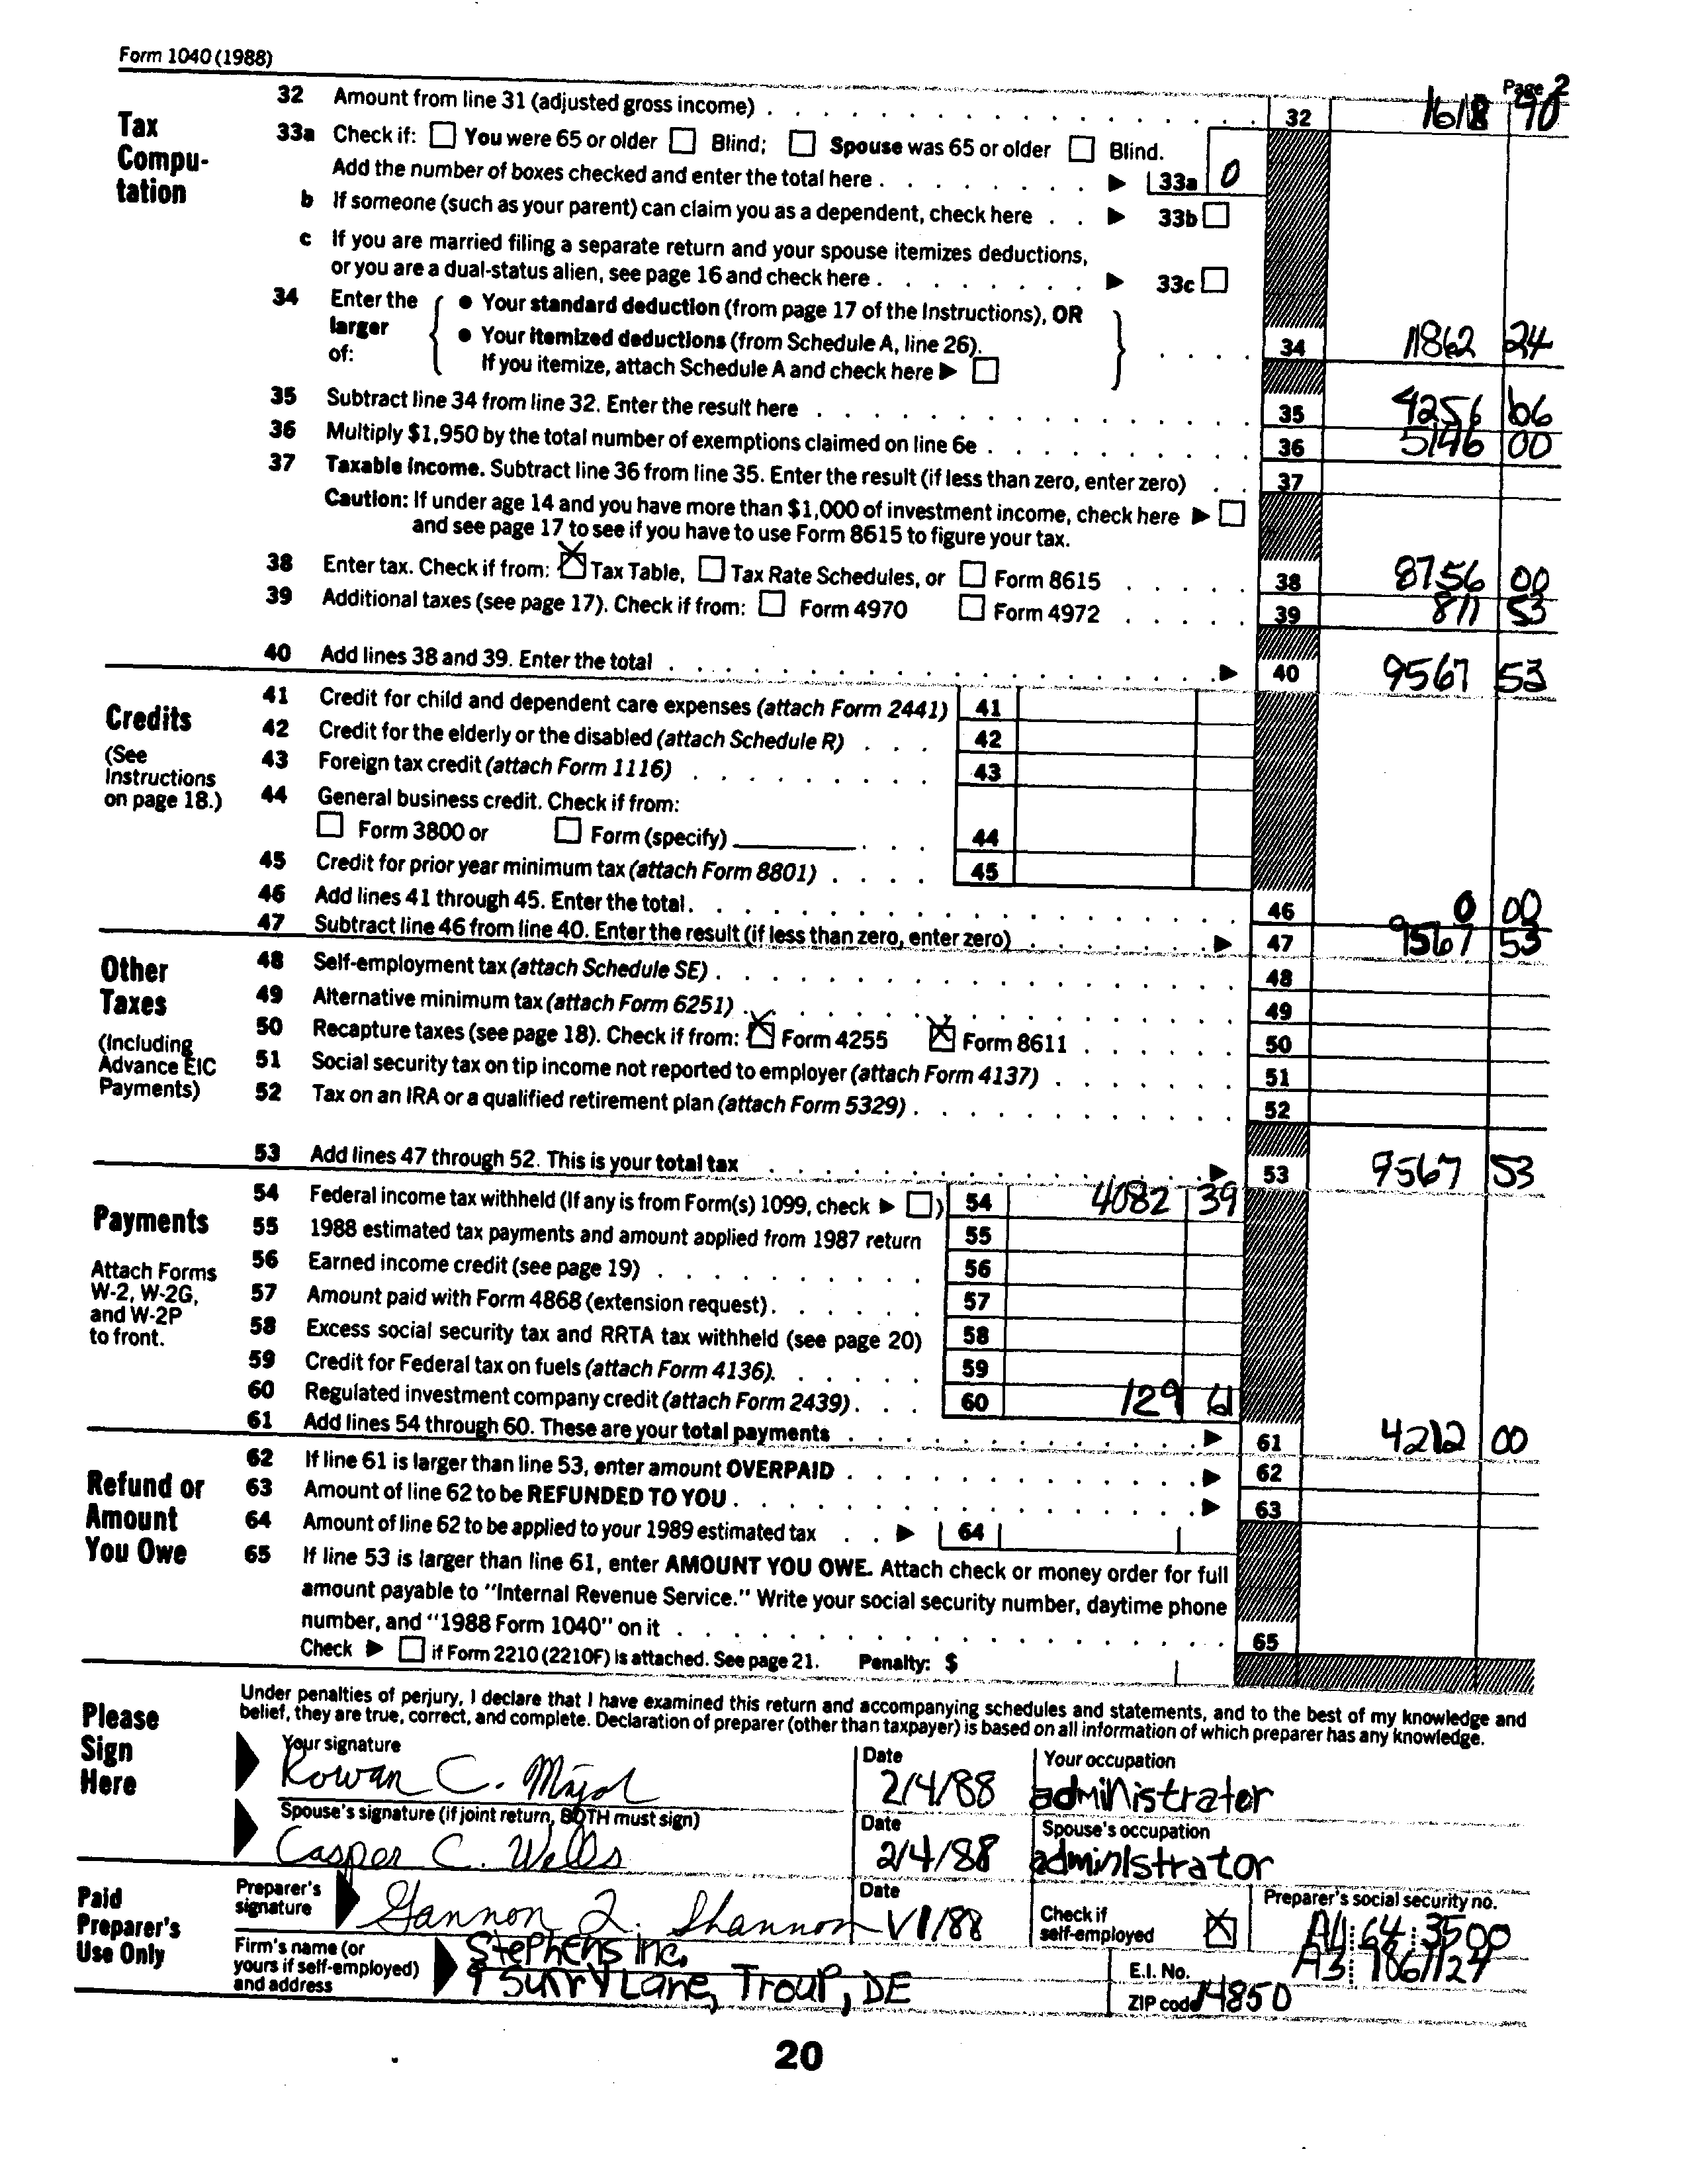 Form 1040 (1988)
Page 2
Tax Compu-tation
32 Amount from line 31 (adjusted gross income) 32 16118 90
33a Check if: You were 65 or older Blind; Spouse was 65 or older Blind.
Add the number of boxes checked and enter the total here 33a 0
b If someone (such as your parent) can claim you as a dependent, check here 33b
c If you are married filing a separate return and your spouse itemizes deductions,
or you are a dual-status alien, see page 16 and check here 33c
34 Enter the larger of: • Your standard deduction (from page 17 of the Instructions), OR
• Your itemized deductions (from Schedule A, line 26).
If you itemize, attach Schedule A and check here 34 11862 24
35 Subtract line 34 from line 32. Enter the result here 35 4256 66
36 Multiply $1,950 by the total number of exemptions claimed on line 6e 36 5146 00
37 Taxable income. Subtract line 36 from line 35. Enter the result (if less than zero, enter zero) 37
Caution: If under age 14 and you have more than $1,000 of investment income, check here
and see page 17 to see if you have to use Form 8615 to figure your tax.
38 Enter tax. Check if from: Tax Table, Tax Rate Schedules, or Form 8615 38 8756 00
39 Additional taxes (see page 17). Check if from: Form 4970 Form 4972 39 811 53
40 Add lines 38 and 39. Enter the total 40 9567 53
Credits
(See Instructions on page 18.)
41 Credit for child and dependent care expenses (attach Form 2441) 41
42 Credit for the elderly or the disabled (attach Schedule R) 42
43 Foreign tax credit (attach Form 1116) 43
44 General business credit. Check if from:
Form 3800 or Form (specify) 44
45 Credit for prior year minimum tax (attach Form 8801) 45
46 Add lines 41 through 45. Enter the total 46 0 00
47 Subtract line 46 from line 40. Enter the result (if less than zero, enter zero) 47 9567 53
Other Taxes
(Including Advance EIC Payments)
48 Self-employment tax (attach Schedule SE) 48
49 Alternative minimum tax (attach Form 6251) 49
50 Recapture taxes (see page 18). Check if from: Form 4255 Form 8611 50
51 Social security tax on tip income not reported to employer (attach Form 4137) 51
52 Tax on an IRA or a qualified retirement plan (attach Form 5329) 52
53 Add lines 47 through 52. This is your total tax 53 9567 53
Payments
Attach Forms W-2, W-2G, and W-2P to front.
54 Federal income tax withheld (If any is from Form(s) 1099, check ) 54 4082 39
55 1988 estimated tax payments and amount applied from 1987 return 55
56 Earned income credit (see page 19) 56
57 Amount paid with Form 4868 (extension request) 57
58 Excess social security tax and RRTA tax withheld (see page 20) 58
59 Credit for Federal tax on fuels (attach Form 4136). 59
60 Regulated investment company credit (attach Form 2439) 60 129 61
61 Add lines 54 through 60. These are your total payments 61 4212 00
Refund or Amount You Owe
62 If line 61 is larger than line 53, enter amount OVERPAID 62
63 Amount of line 62 to be REFUNDED TO YOU 63
64 Amount of line 62 to be applied to your 1989 estimated tax 64
65 If line 53 is larger than line 61, enter AMOUNT YOU OWE. Attach check or money order for full
amount payable to "Internal Revenue Service." Write your social security number, daytime phone
number, and "1988 Form 1040" on it 65
Check if Form 2210 (2210F) is attached. See page 21. Penalty: $
Please Sign Here
Under penalties of perjury, I declare that I have examined this return and accompanying schedules and statements, and to the best of my knowledge and
belief, they are true, correct, and complete. Declaration of preparer (other than taxpayer) is based on all information of which preparer has any knowledge.
Your signature Date Your occupation
Rowan C. Major 2/4/88 administrator
Spouse's signature (if joint return, BOTH must sign) Date Spouse's occupation
Casper C. Wells 2/4/88 administrator
Paid Preparer's Use Only
Preparer's signature Date Check if self-employed Preparer's social security no.
Gannon Shannon
Firm's name (or yours if self-employed) and address
Stephens Inc. E.I. No.
9 Surry Lane, Troup, DE ZIP code 14850
20